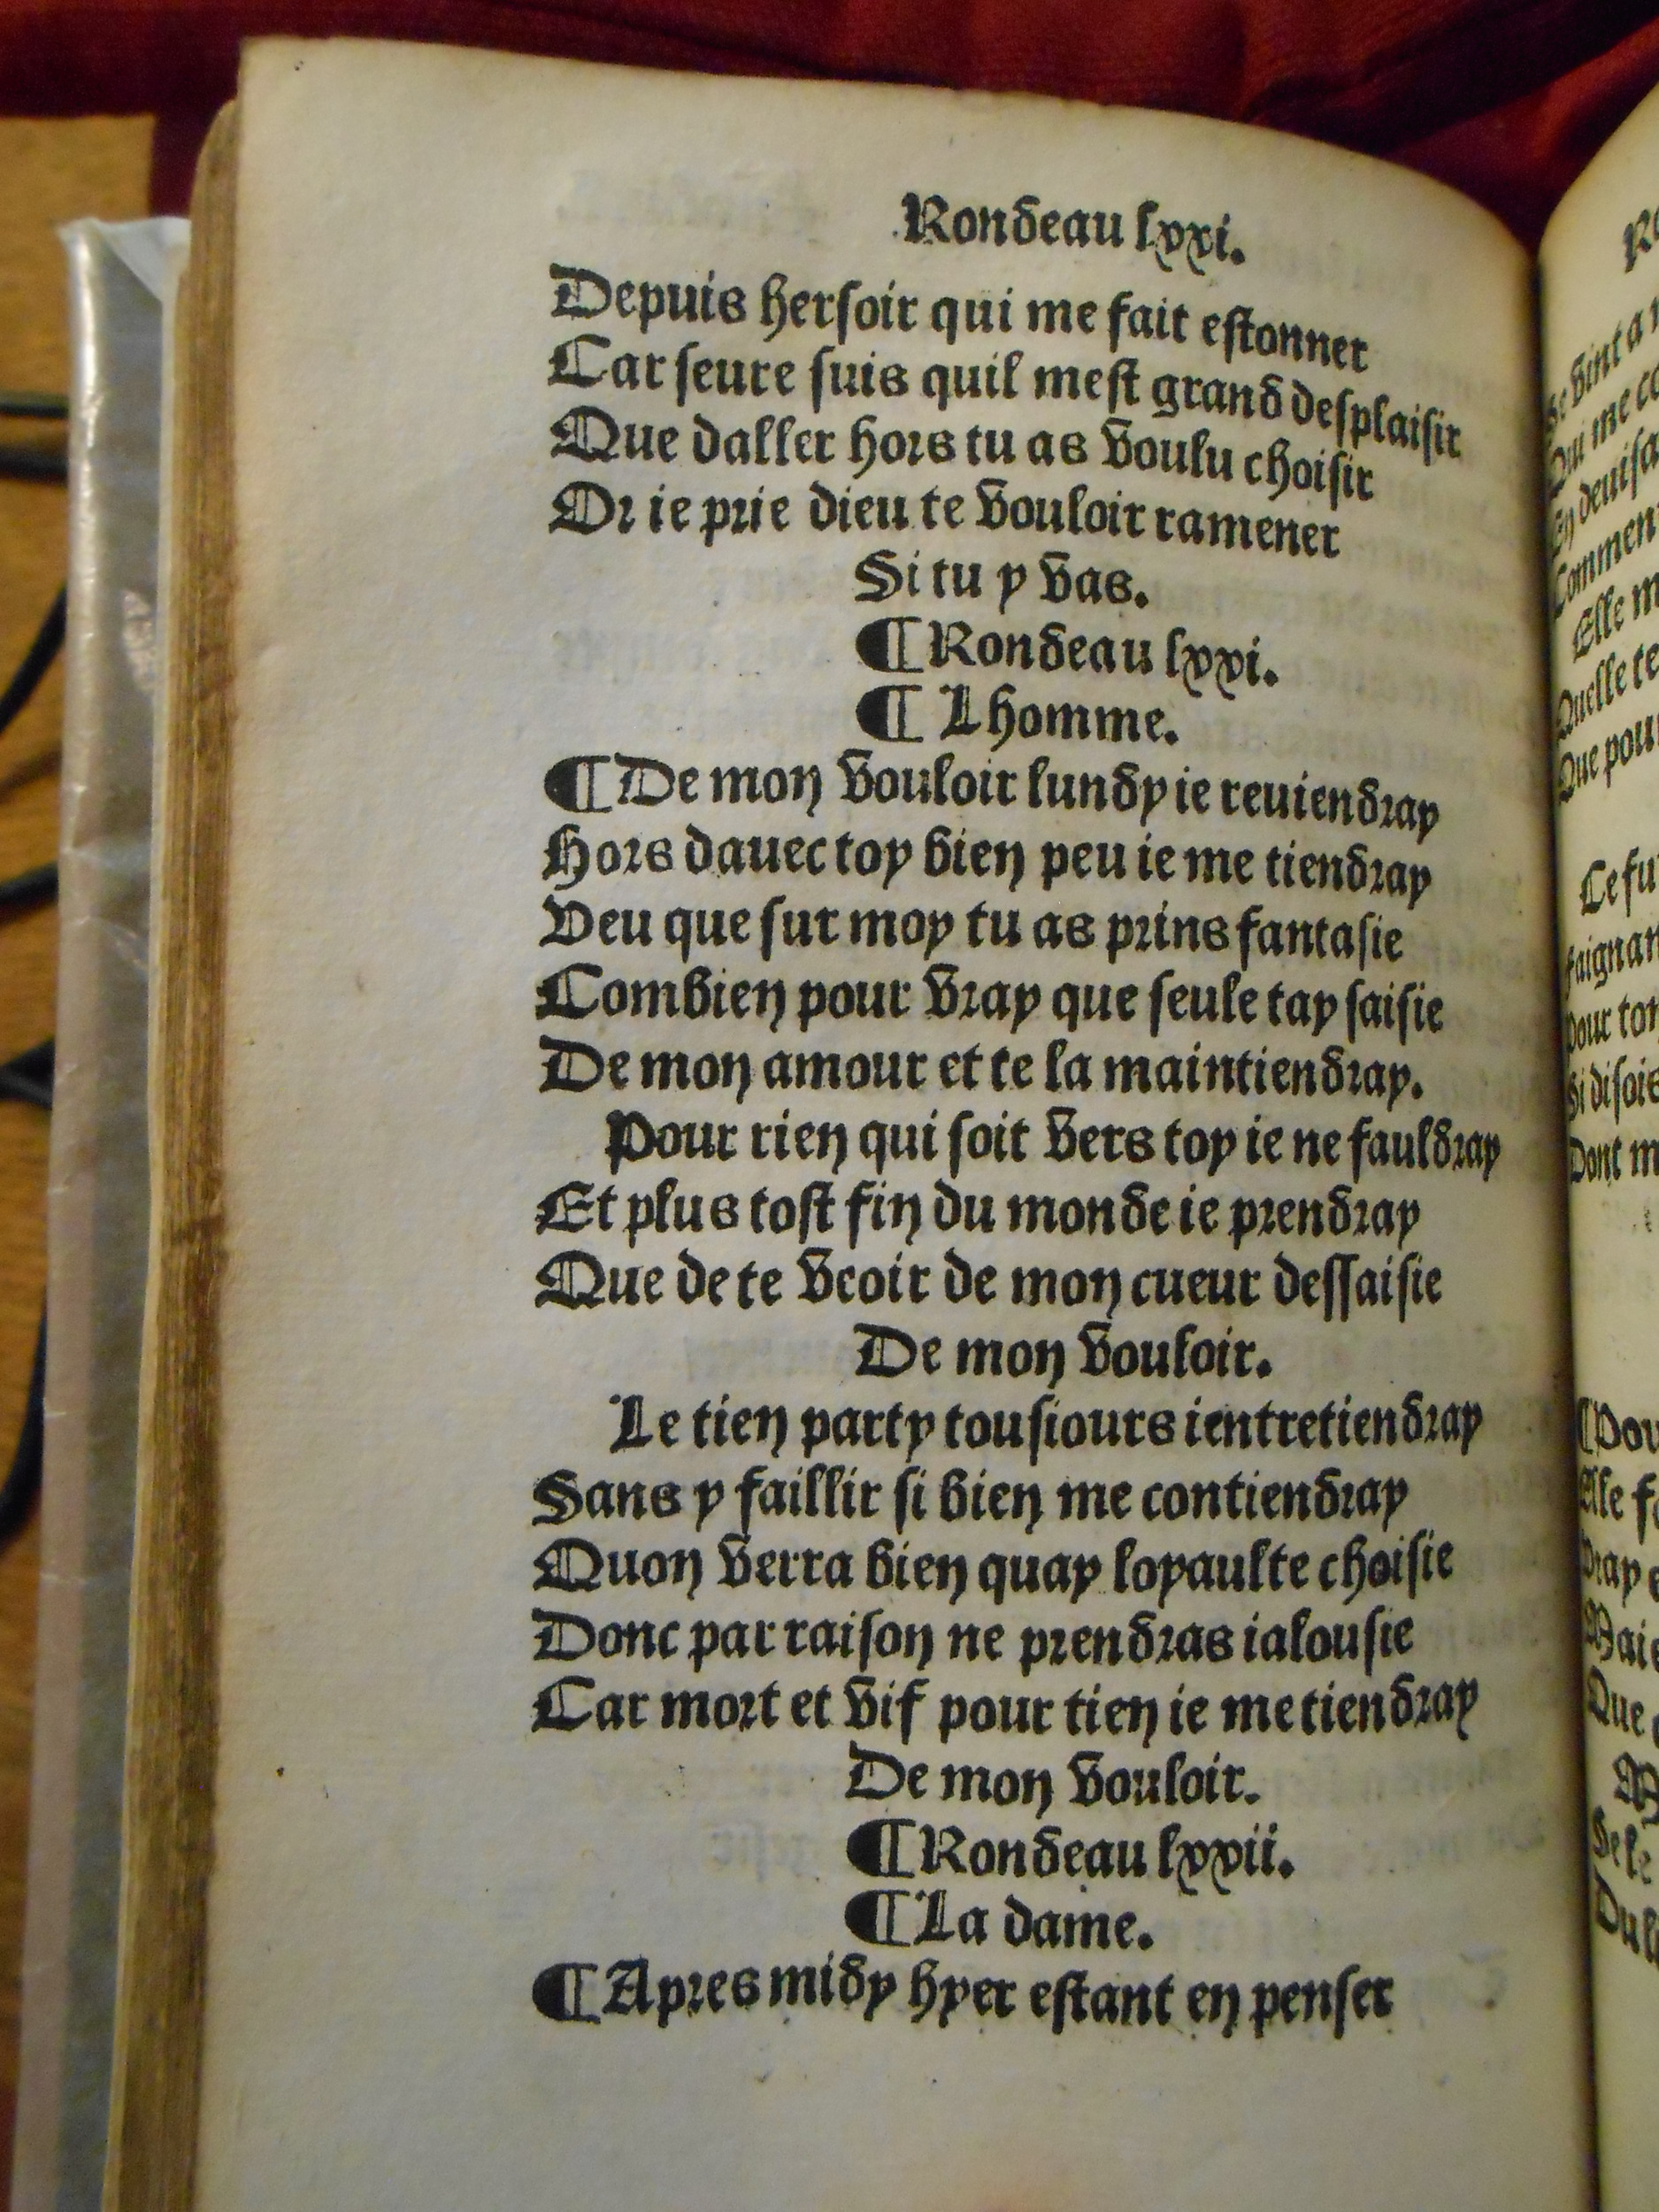 Rondeau lxxi.
Depuis hersoir qui me fait estonner
Car seure suis quil mest grand desplaisir
Que daller hors tu as voulu choisir
Or ie prie dieu te vouloir ramener
Si tu y vas.
¶ Rondeau lxxi.
¶ Lhomme.
¶ De mon vouloir lundy ie reuiendray
Hors dauec toy bien peu ie me tiendray
Veu que sur moy tu as prins fantasie
Combien pour vray que seule tay saisie
De mon amour et te la maintiendray.
Pour rien qui soit vers toy ie ne fauldray
Et plus tost fin du monde ie prendray
Que de te veoir de mon cueur dessaisie
De mon vouloir.
Le tien party tousiours ientretiendray
Sans y faillir si bien me contiendray
Quon verra bien quay loyaulte choisie
Donc par raison ne prendras ialousie
Car mort et vif pour tien ie me tiendray
De mon vouloir.
¶ Rondeau lxxii.
¶ La dame.
¶ Apres midy hyer estant en penser
vint a
Qui me
Elle
Que
Ce
Si
Dont
Que